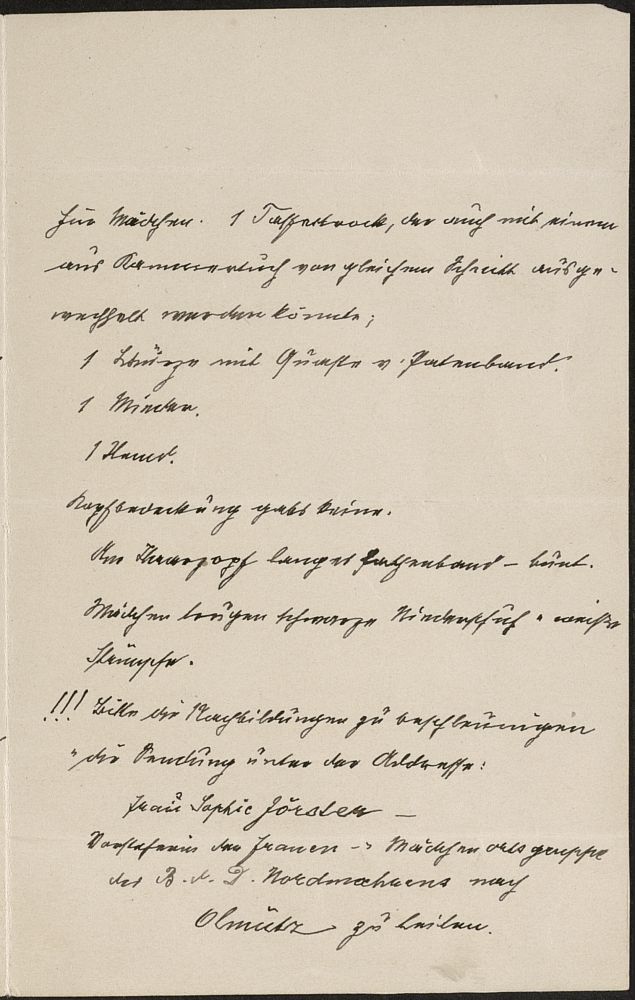 Für Mädchen. 1 Taffetrock, der auch mit einem
aus Kammertuch von gleichem Schnitt ausge-
wechselt werden könnte;
1 Schürze mit Quaste v. Fatenband.
1 Mieder.
1 Hemd.
Kopfbedeckung gabs keine.
Am Haarzopf langes Fathenband – bunt.
Mädchen trugen schwarze Niederschuh u weiße
Strümpfe.
!!! Bitte die Nachbildungen zu beschleunigen
u die Sendung unter der Addresse:
Frau Sophie Jörsten –
Vorsteherin der Frauen - u Mädchenortsgruppe
des B. d. D. Nordmährens nach
Olmütz zu leiten.